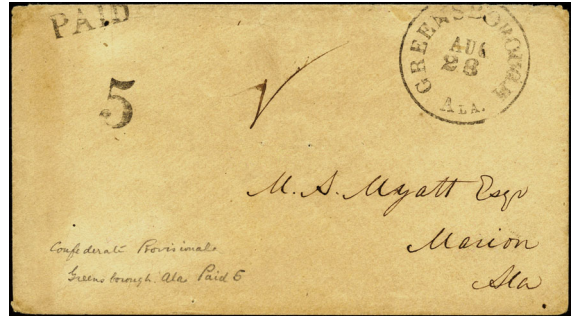 PAID
GREENSBOROUGH
AUG
28
ALA.
5
M. S. Myatt Esqr
Marion
Ala
Confederate Provisional
Greensborough Ala Paid 5